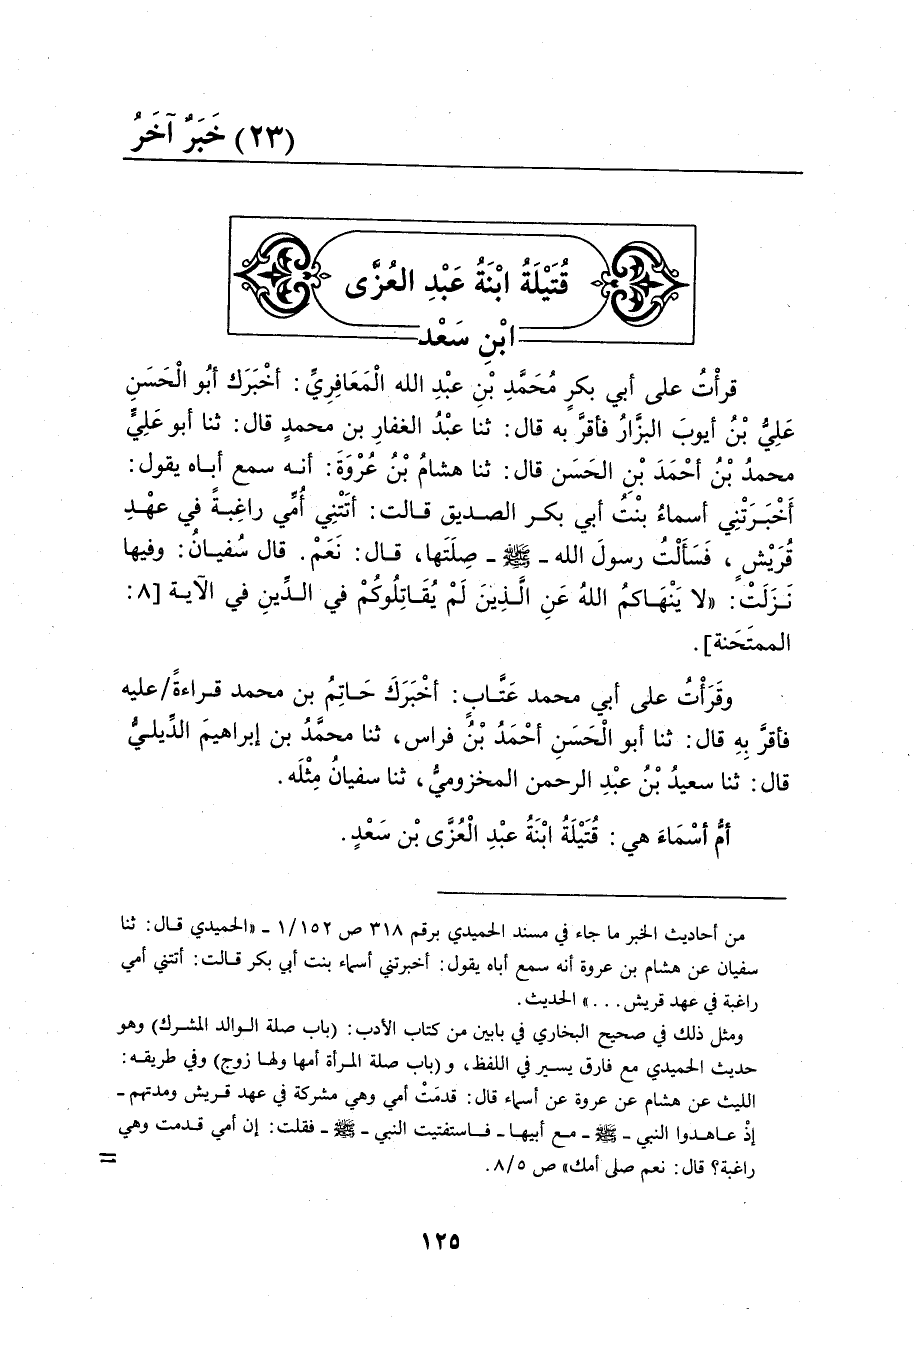 (٢٣) خَبَرٌ آخَرُ
قُتَيْلَةُ ابْنَةُ عَبْدِ العُزَّى
ابْنِ سَعْد
قرأْتُ على أبي بكرٍ مُحَمَّدِ بْنِ عبْدِ الله الْمَعَافِرِيِّ: أخْبَرَك أبُو الْحَسَنِ
عَلِيُّ بْنُ أيوبَ البزَّارُ فأقرَّ به قال: ثنا عبْدُ الغفارِ بن محمدٍ قال: ثنا أبو عَلِيٍّ
محمدُ بْنُ أحْمَدَ بْنِ الحَسَن قال: ثنا هشامُ بْنُ عُرْوَةَ: أنه سمع أباه يقول:
أَخْبَرَتْنِي أسماءُ بنْتُ أبي بكر الصديق قالت: أتَتْنِي أُمِّي راغِبةً في عهْدِ
قُرَيْشٍ، فَسَأَلْتُ رسولَ الله ـ ﷺ ـ صِلَتَها، قال: نَعَمْ. قال سُفيانُ: وفيها
نَزَلَتْ: «لا يَنْهَاكمُ اللهُ عَنِ الَّذِينَ لَمْ يُقَاتِلُوكُمْ في الدِّينِ في الآية [٨:
الممتَحَنة].
وقَرَأْتُ على أبي محمد عَتَّابٍ: أخْبَرَكَ حَاتِمُ بن محمد قراءةً/عليه
فأقرَّ بِهِ قال: ثنا أبو الْحَسَنِ أحْمَدُ بْنُ فراس، ثنا محمَّدُ بن إبراهيمَ الدِّيليُّ
قال: ثنا سعيدُ بْنُ عبْدِ الرحمن المخزوميُّ، ثنا سفيانُ مِثْلَه.
أمُّ أسْمَاءَ هي: قُتَيْلَةُ ابْنَةُ عبْدِ الْعُزَّى بْن سَعْدٍ.
من أحاديث الخبر ما جاء في مسند الحميدي برقم ٣١٨ ص ١/١٥٢ ـ «الحميدي قال: ثنا
سفيان عن هشام بن عروة أنه سمع أباه يقول: أخبرتني أسماء بنت أبي بكر قالت: أتتني أمي
راغبة في عهد قريش...» الحديث.
ومثل ذلك في صحيح البخاري في بابين من كتاب الأدب: (باب صلة الوالد المشرك) وهو
حديث الحميدي مع فارق يسير في اللفظ، و(باب صلة المرأة أمها ولها زوج) وفي طريقه:
الليث عن هشام عن عروة عن أسماء قال: قدمَتْ أمي وهي مشركة في عهد قريش ومدتهم ـ
إذْ عاهدوا النبي ـ ﷺ ـ مع أبيها ـ فاستفتيت النبي ـ ﷺ ـ فقلت: إن أمي قدمت وهي
راغبة؟ قال: نعم صلى أمك» ص ٨/٥.
=
١٢٥